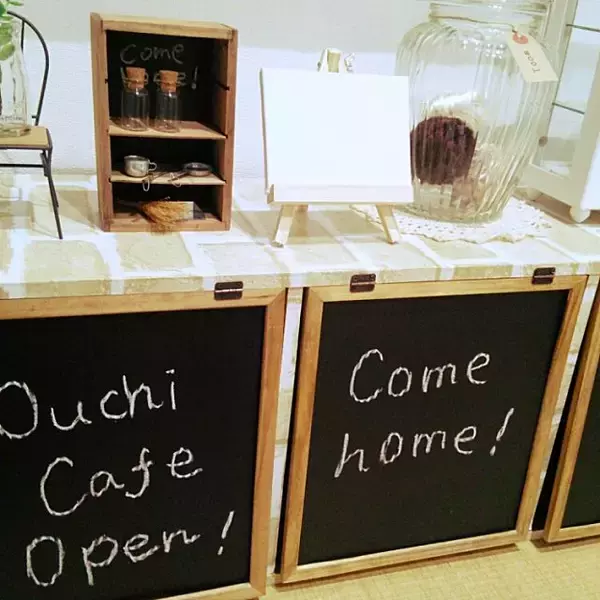 Come
home!
Ouchi
Cafe
Open!
Come
home!